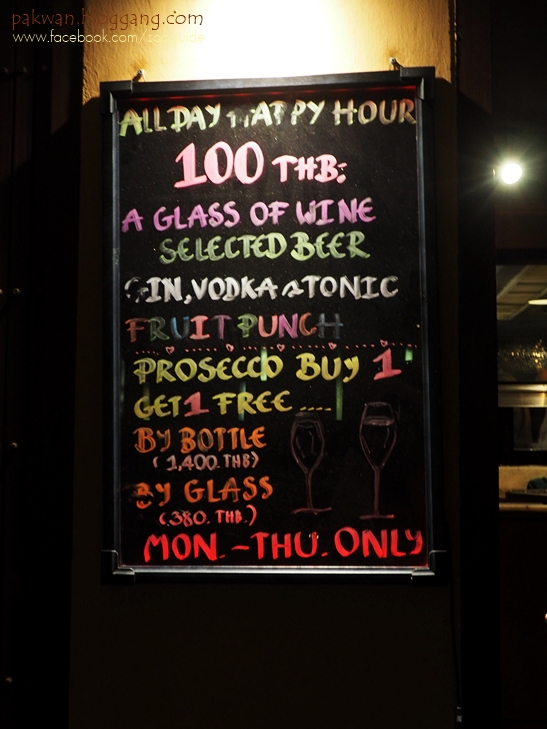 pakwan.bloggang.com
www.facebook.com/
ALL DAY HAPPY HOUR
100 THB:
A GLASS OF WINE
SELECTED BEER
GIN, VODKA & TONIC
FRUIT PUNCH
PROSECCO BUY 1
GET 1 FREE ....
BY BOTTLE
(1,400.THB)
BY GLASS
(380. THB.)
MON. - THU. ONLY